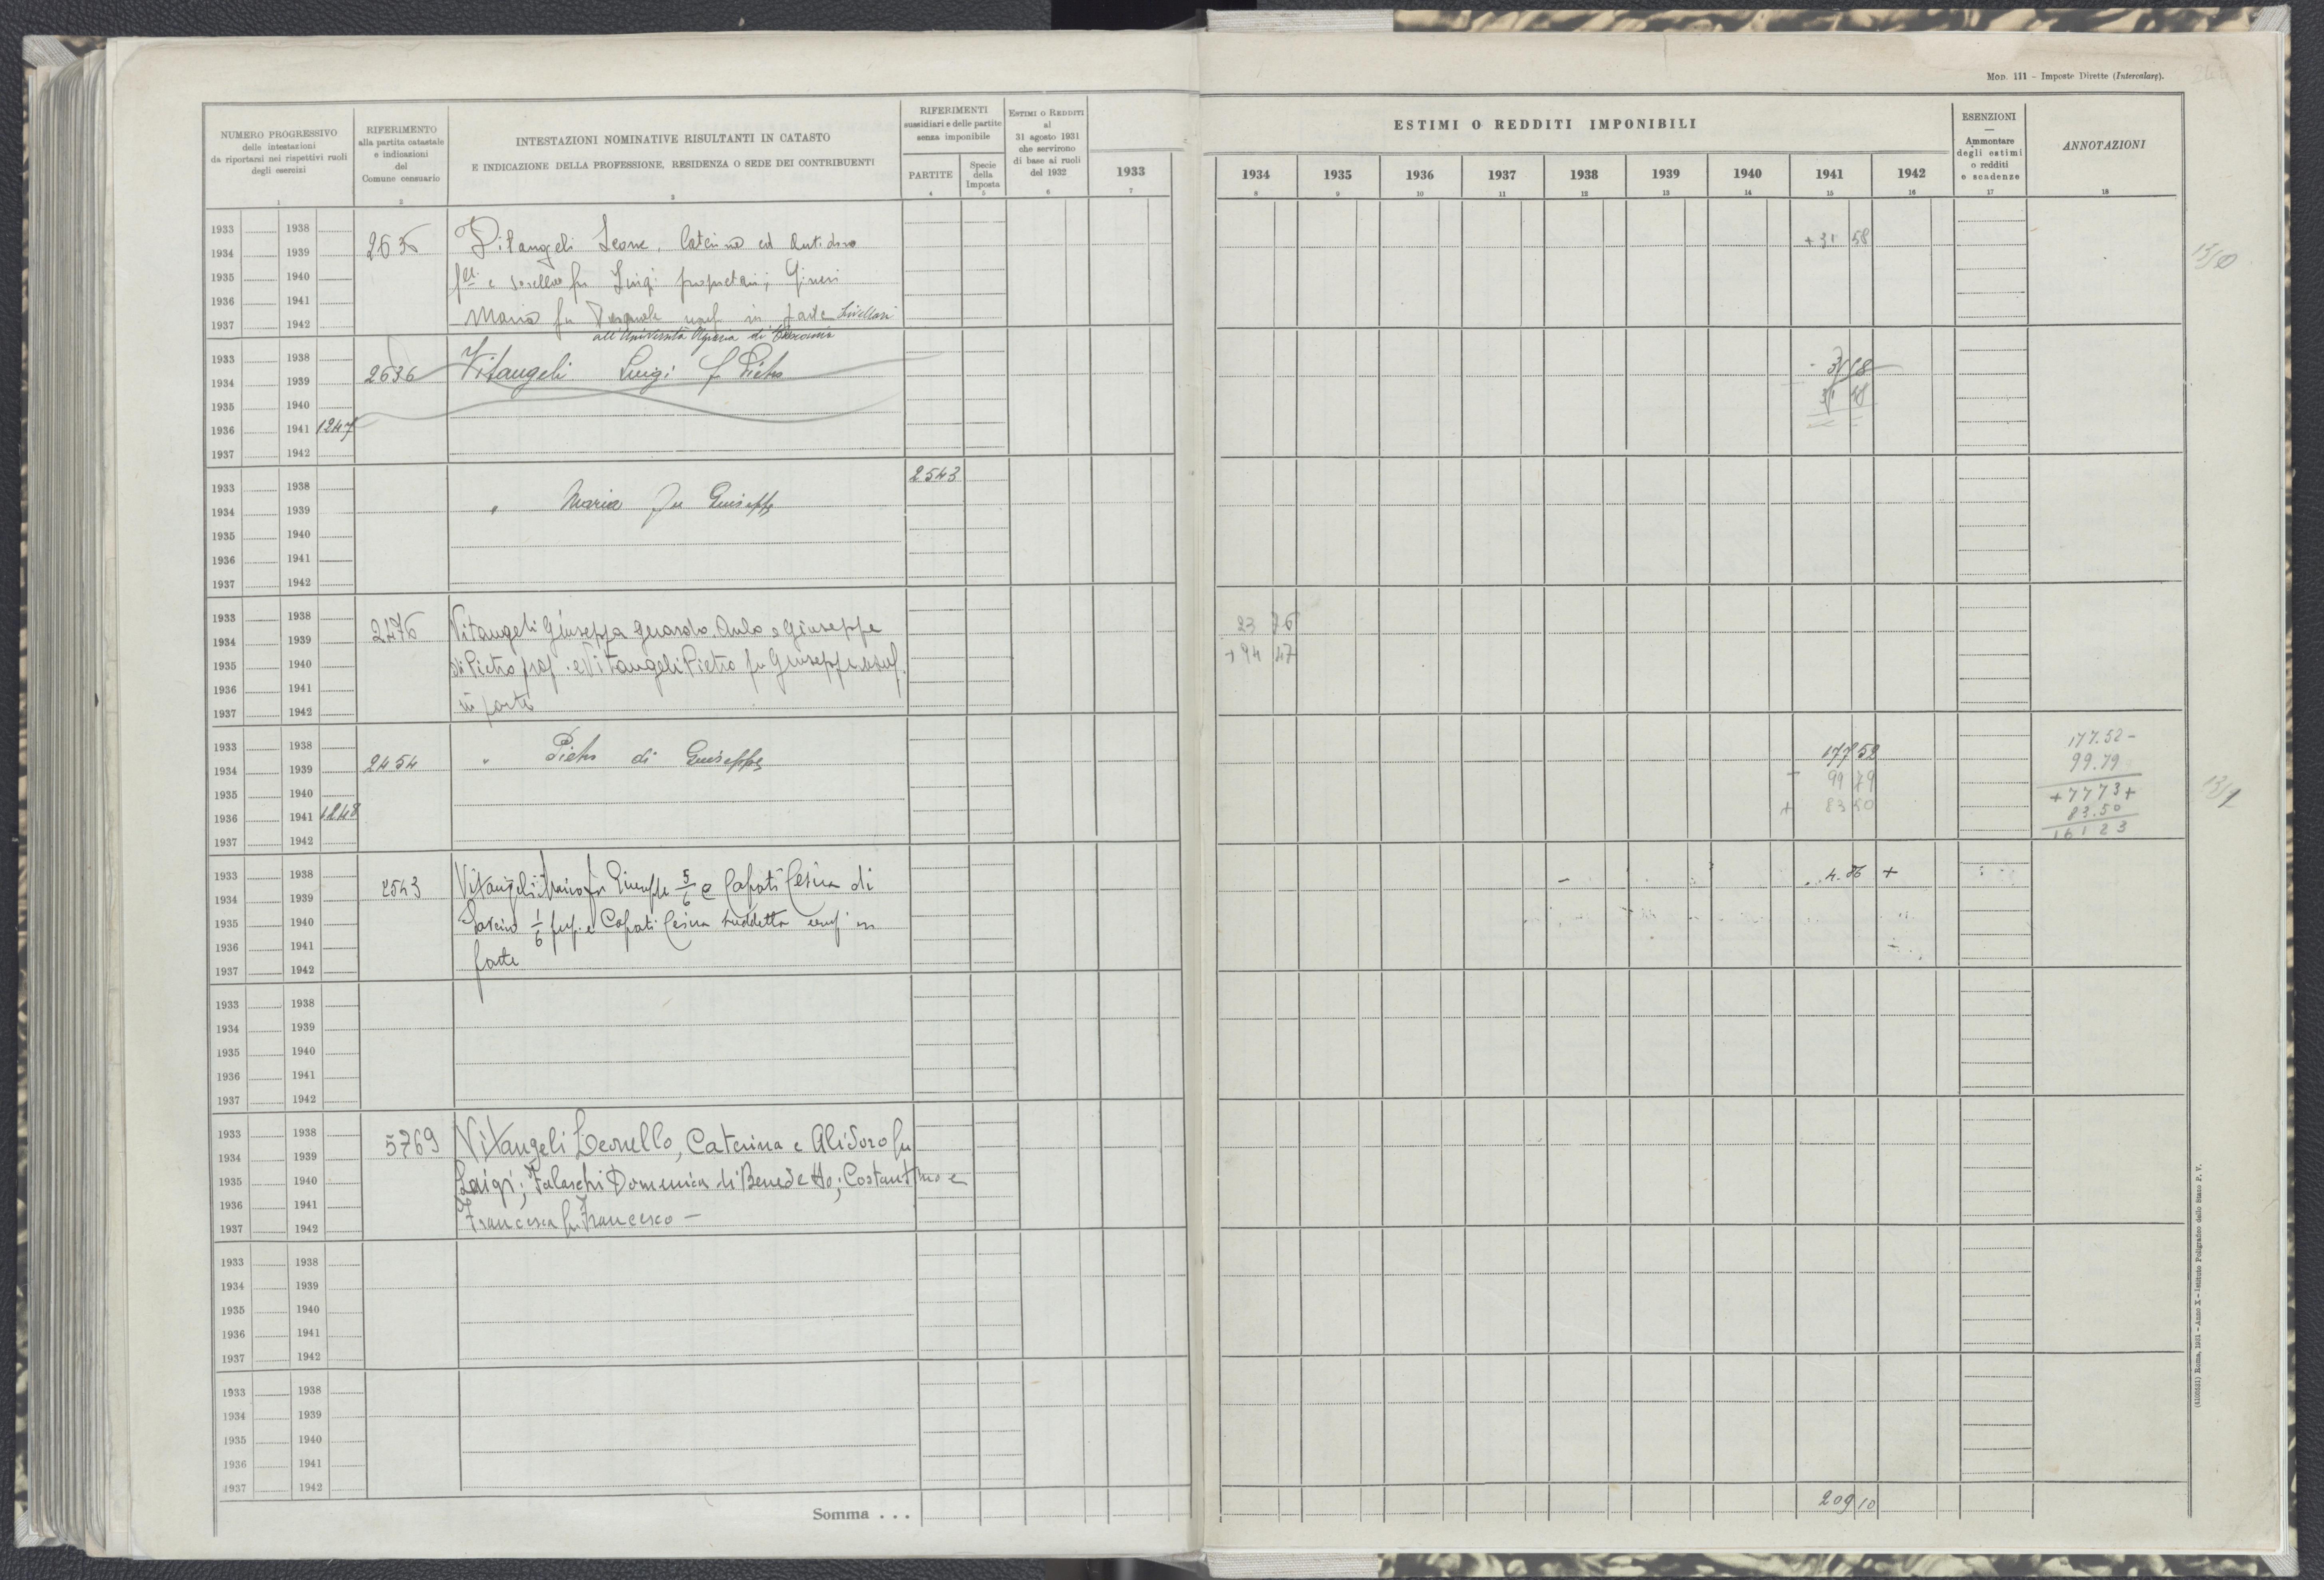 MOD. 111 - Imposte Dirette (Intercalare).
NUMERO PROGRESSIVO
delle intestazioni
da riportarsi nei rispettivi ruoli
degli esercizi
1
RIFERIMENTO
alla partita catastale
e indicazioni
del
Comune censuario
2
INTESTAZIONI NOMINATIVE RISULTANTI IN CATASTO
E INDICAZIONE DELLA PROFESSIONE, RESIDENZA O SEDE DEI CONTRIBUENTI
3
RIFERIMENTI
sussidiari e delle partite
senza imponibile
PARTITE
4
Specie
della
Imposta
5
ESTIMI O REDDITI
al
31 agosto 1931
che servirono
di base ai ruoli
del 1932
6
1933
7
ESTIMI O REDDITI IMPONIBILI
1934 1935 1936 1937 1938 1939 1940 1941 1942
8 9 10 11 12 13 14 15 16
ESENZIONI
—
Ammontare
degli estimi
o redditi
e scadenze
17
ANNOTAZIONI
18
1933 1938
1934 1939
1935 1940
1936 1941
1937 1942
Vitangeli Leone, Caterina ed
e sorella fu Luigi proprietari;
Maria fu Pasquale usuf in parte Livellari
all'Università Agraria di
+31 58
13/0
1933 1938
1934 1939
1935 1940
1936 1941 1247
1937 1942
2636 Vitangeli Luigi f Pietro
1933 1938
1934 1939
1935 1940
1936 1941
1937 1942
" Maria fu Giuseppe
2543
1933 1938
1934 1939
1935 1940
1936 1941
1937 1942
2476 Vitangeli Giuseppa Gerardo, e Giuseppe
di Pietro prop. e Vitangeli Pietro fu Giuseppe usuf.
in parte
23 76
+94 47
1933 1938
1934 1939
1935 1940
1936 1941 1248
1937 1942
2454 " Pietro di Giuseppe
177 52
- 99 79
+ 83 50
177.52 -
99.79
+7773+
83.50
16123
13/1
1933 1938
1934 1939
1935 1940
1936 1941
1937 1942
2543 Vitangeli Maria fu Giuseppe 5/6 e Capati Cesira di
1/6 prop. e Capati Cesira suddetta usuf in
parte
- 4.86 +
1933 1938
1934 1939
1935 1940
1936 1941
1937 1942
1933 1938
1934 1939
1935 1940
1936 1941
1937 1942
5769 Vitangeli Leonello, Caterina e Alidoro fu
Luigi; Falaschi Domenica di Benedetto; Costantino e
Francesca fu Francesco —
1933 1938
1934 1939
1935 1940
1936 1941
1937 1942
1933 1938
1934 1939
1935 1940
1936 1941
1937 1942
Somma . . .
209 10
Roma, 1931 - Anno X - Istituto Poligrafico dello Stato P. V.